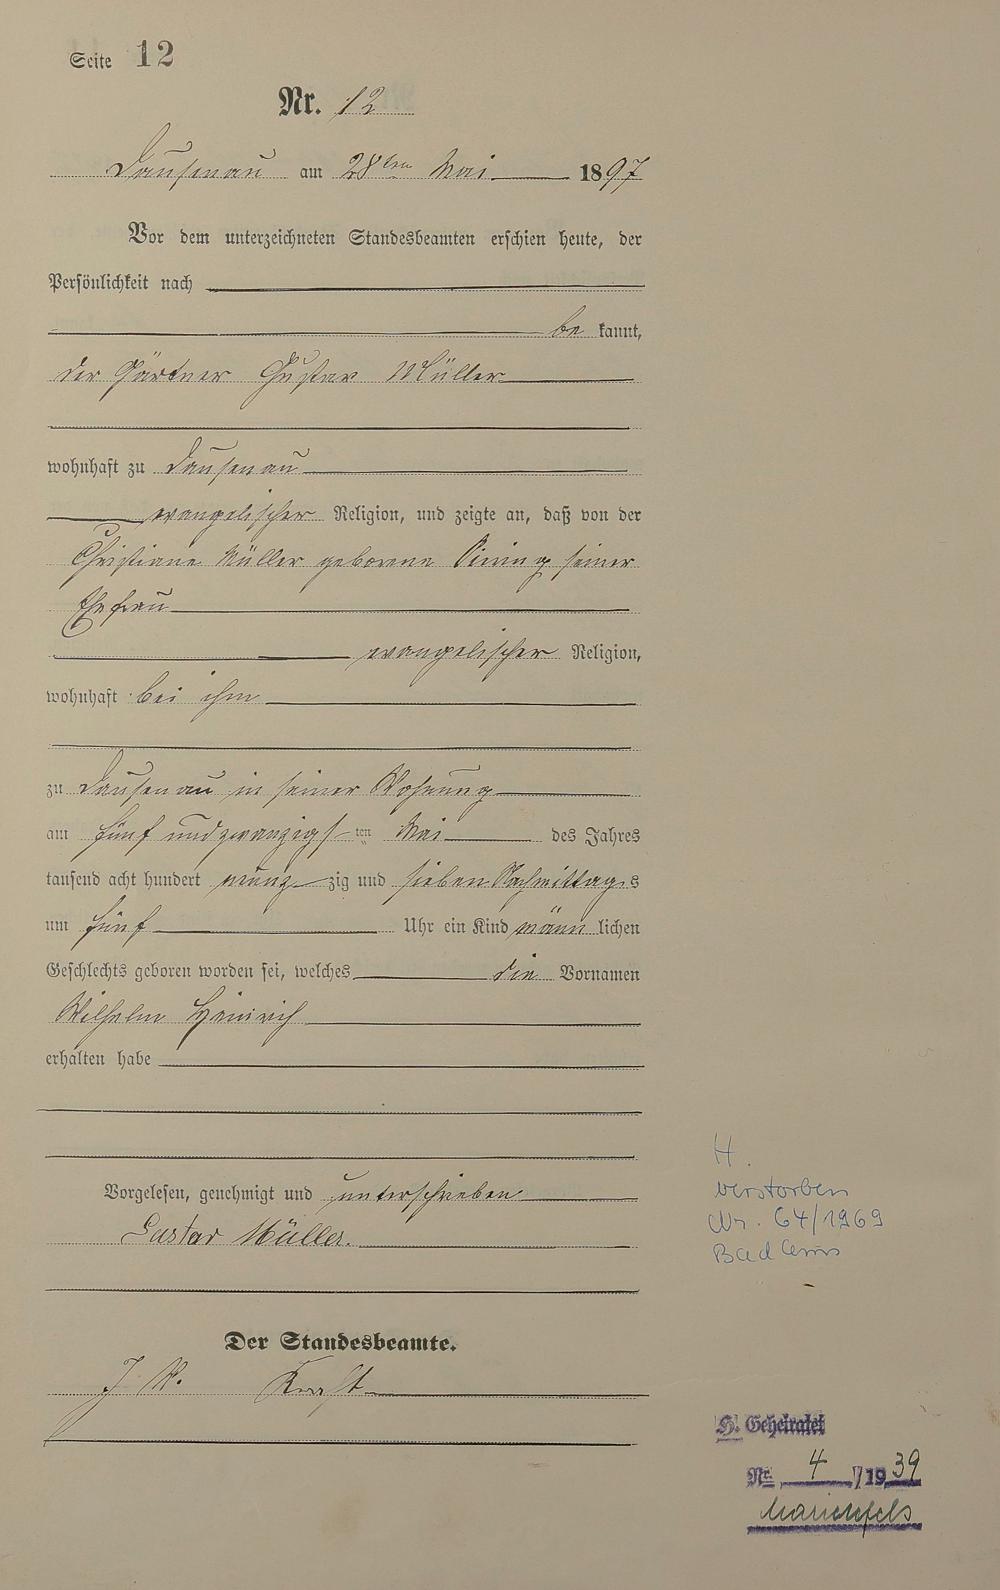 Seite 12
Nr. 12
Dausenau am 28ten Mai 1897
Vor dem unterzeichneten Standesbeamten erschien heute, der
Persönlichkeit nach
be kannt,
der Gärtner Gustav Müller
wohnhaft zu Dausenau
evangelischer Religion, und zeigte an, daß von der
Christiane Müller geborene seiner
Ehefrau
evangelischer Religion,
wohnhaft bei ihm
zu Dausenau in seiner Wohnung
am fünf und zwanzigs ten Mai des Jahres
tausend acht hundert neunz zig und sieben Nachmittags
um fünf Uhr ein Kind männ lichen
Geschlechts geboren worden sei, welches die Vornamen
Wilhelm Heinrich
erhalten habe
Vorgelesen, genehmigt und unterschrieben
Gustav Müller.
Der Standesbeamte.
J. W. Kraft
H.
verstorben
Nr. 64/1969
Bad Ems
H. Geheiratet
Nr. 4 /1939
Marienfels